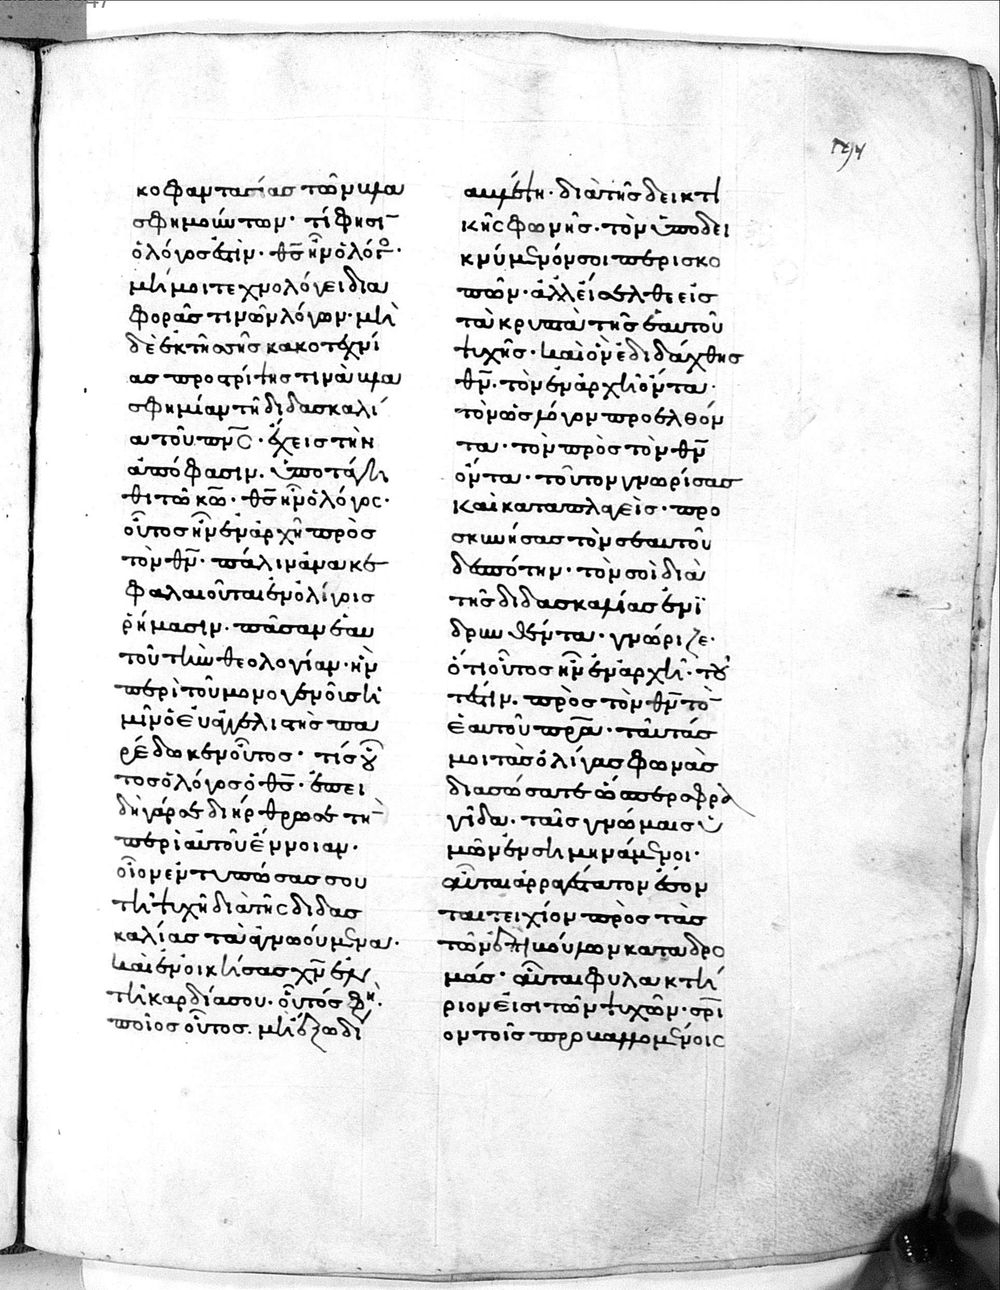 κοφαντασίας τῶν βλα
σφημούντων· τί φησι̅
ὁ λόγος ἐστὶν· θς̅ ἦν ὁ λόγος·
μή μοι τεχνολόγει δια
φορᾶς τινῶν λόγων· μὴ
δὲ ἐκ τῆς σῆς κακοτεχνί
ας προστρίψης τινὰ βλα
σφημίαν τῆ διδασκαλί
α τοῦ πνς̅· ἔχεις τὴν
ἀπόφασιν. ὑποτάγη
θι τῶ κω̅· θς̅ ἦν ὁ λόγος·
οὗτος ἦν ἐν ἀρχῆ πρὸς
τὸν θν̅· πάλιν ἀνακε
φαλαιοῦται ἐν ὀλίγοις
ῥήμασιν. πᾶσαν ἑαυ
τοῦ τὴν θεολογίαν· ἣν
περὶ τοῦ μονογενοῦς ἡ
μῖν ὁ εὐαγγελιστὴς πα
ρέδωκεν οὗτος· τίς οὗ
τος ὁ λόγος ὁ θς̅· ἐπει
δὴ γάρ σε διήρθρωσε τὴ̅
περὶ αὐτοῦ ἔννοιαν·
οἷον ἐντυπώσας σου
τῆ ψυχῆ διὰ τῆς διδασ
καλίας τὰ ἀγνοούμενα·
καὶ ἐνοικήσας χν̅ ἐν
τῆ καρδία σου. οὗτός φη·
ποῖος οὗτος. μὴ ἔξω δι
αμέση· διὰ τῆς δεικτι
κῆς φωνῆς· τὸν ὑποδει
κνύμενόν σοι περισκο
πῶν· ἀλλ' εἰσελθε εἰς
τὰ κρυπτὰ τῆς ἑαυτοῦ
ψυχῆς· καὶ ὃν ἐδιδάχθης
θν̅· τὸν ἐν ἀρχῆ ὄντα·
τὸν ὡς λόγον προελθόν
τα· τὸν πρὸς τὸν θν̅
ὄντα· τοῦτον γνωρίσας
καὶ καταπλαγεὶς· προ
σκυνήσας τὸν σεαυτοῦ
δεσπότην· τὸν σοὶ διὰ
τῆς διδασκαλίας ἐνϊ
δρυνθέντα· γνώριζε·
ὅτι οὗτος ἦν ἐν ἀρχῆ· του
τέστιν. πρὸς τὸν θν̅ τὸ̅
ἑαυτοῦ πρα̅· ταύτάς
μοι τὰς ὀλίγας φωνὰς
διασώσατε ὥσπερ σφρα
γῖδα· ταῖς γνώμαις ὑ
μῶν ἐνσημηνάμενοι·
αὗται ἀρραγέστατον ἔσον
ται τειχίον πρὸς τὰς
τῶν ἐπιβούλων καταδρο
μάς· αὗται φυλακτή
ριον εἰσι τῶν ψυχῶν· σρι̅
ον τοῖς προκαλλομένοις